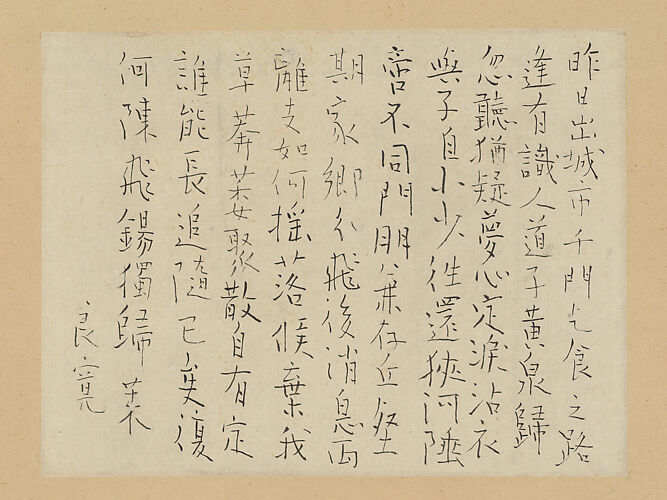 昨日出城市千門乞食之路
逢有識人道子黄泉歸
忽聽猶疑夢心定涙沾衣
與子自小少往還狹河陲
啻不同門朋兼存丘壑
期家鄉分飛後消息両
離支如何搖落候棄我
草莽萎聚散自有定
誰能長追隨已矣復
何陳飛錫獨歸来
良寛